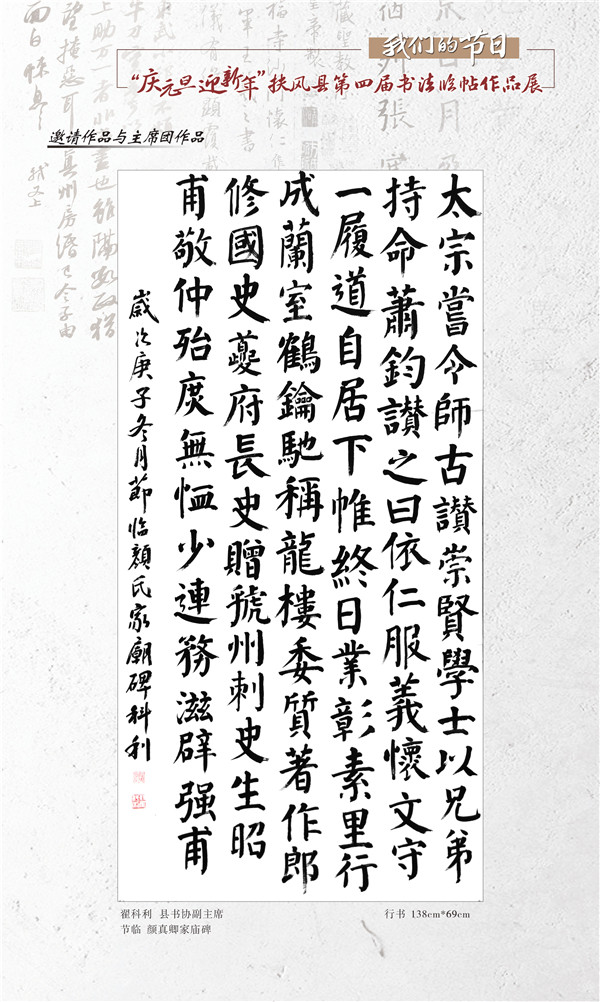 我们的节日
“庆元旦迎新年”扶风县第四届书法临帖作品展
邀请作品与主席团作品
太宗嘗令師古讃崇賢學士以兄弟
持命蕭鈞讃之曰依仁服義懷文守
一履道自居下帷終日業彰素里行
成蘭室鶴鑰馳稱龍樓委質著作郎
修國史夔府長史贈虢州刺史生昭
甫敬仲殆庶無恤少連務滋辟强甫
歲次庚子冬月節临顏氏家廟碑科利
翟科利 县书协副主席
节临 颜真卿家庙碑
行书 138cm*69cm